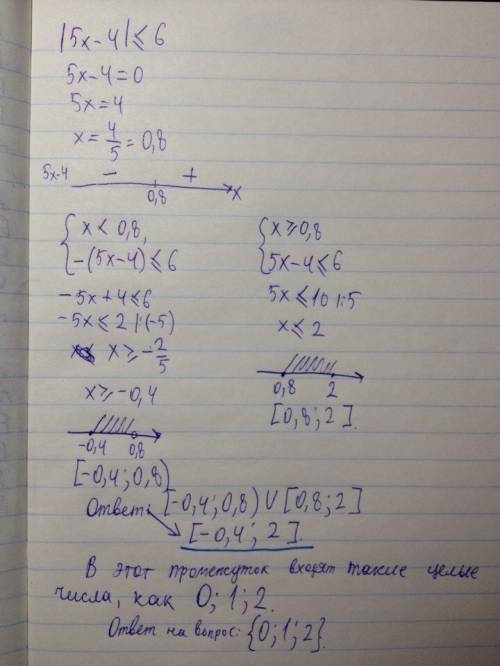 |5x-4|≤6
5x-4=0
5x=4
x=4/5=0,8
5x-4 − + x
0,8
{x<0,8,
-(5x-4)≤6
-5x+4≤6
-5x≤2 |:(-5)
x≥-2/5
x≥-0,4
-0,4 0,8
[-0,4;0,8)
{x≥0,8
5x-4≤6
5x≤10 |:5
x≤2
0,8 2
[0,8;2].
Ответ: [-0,4;0,8)∪[0,8;2]
[-0,4;2].
В этот промежуток входят такие целые
числа, как 0; 1; 2.
Ответ на вопрос: {0;1;2}.